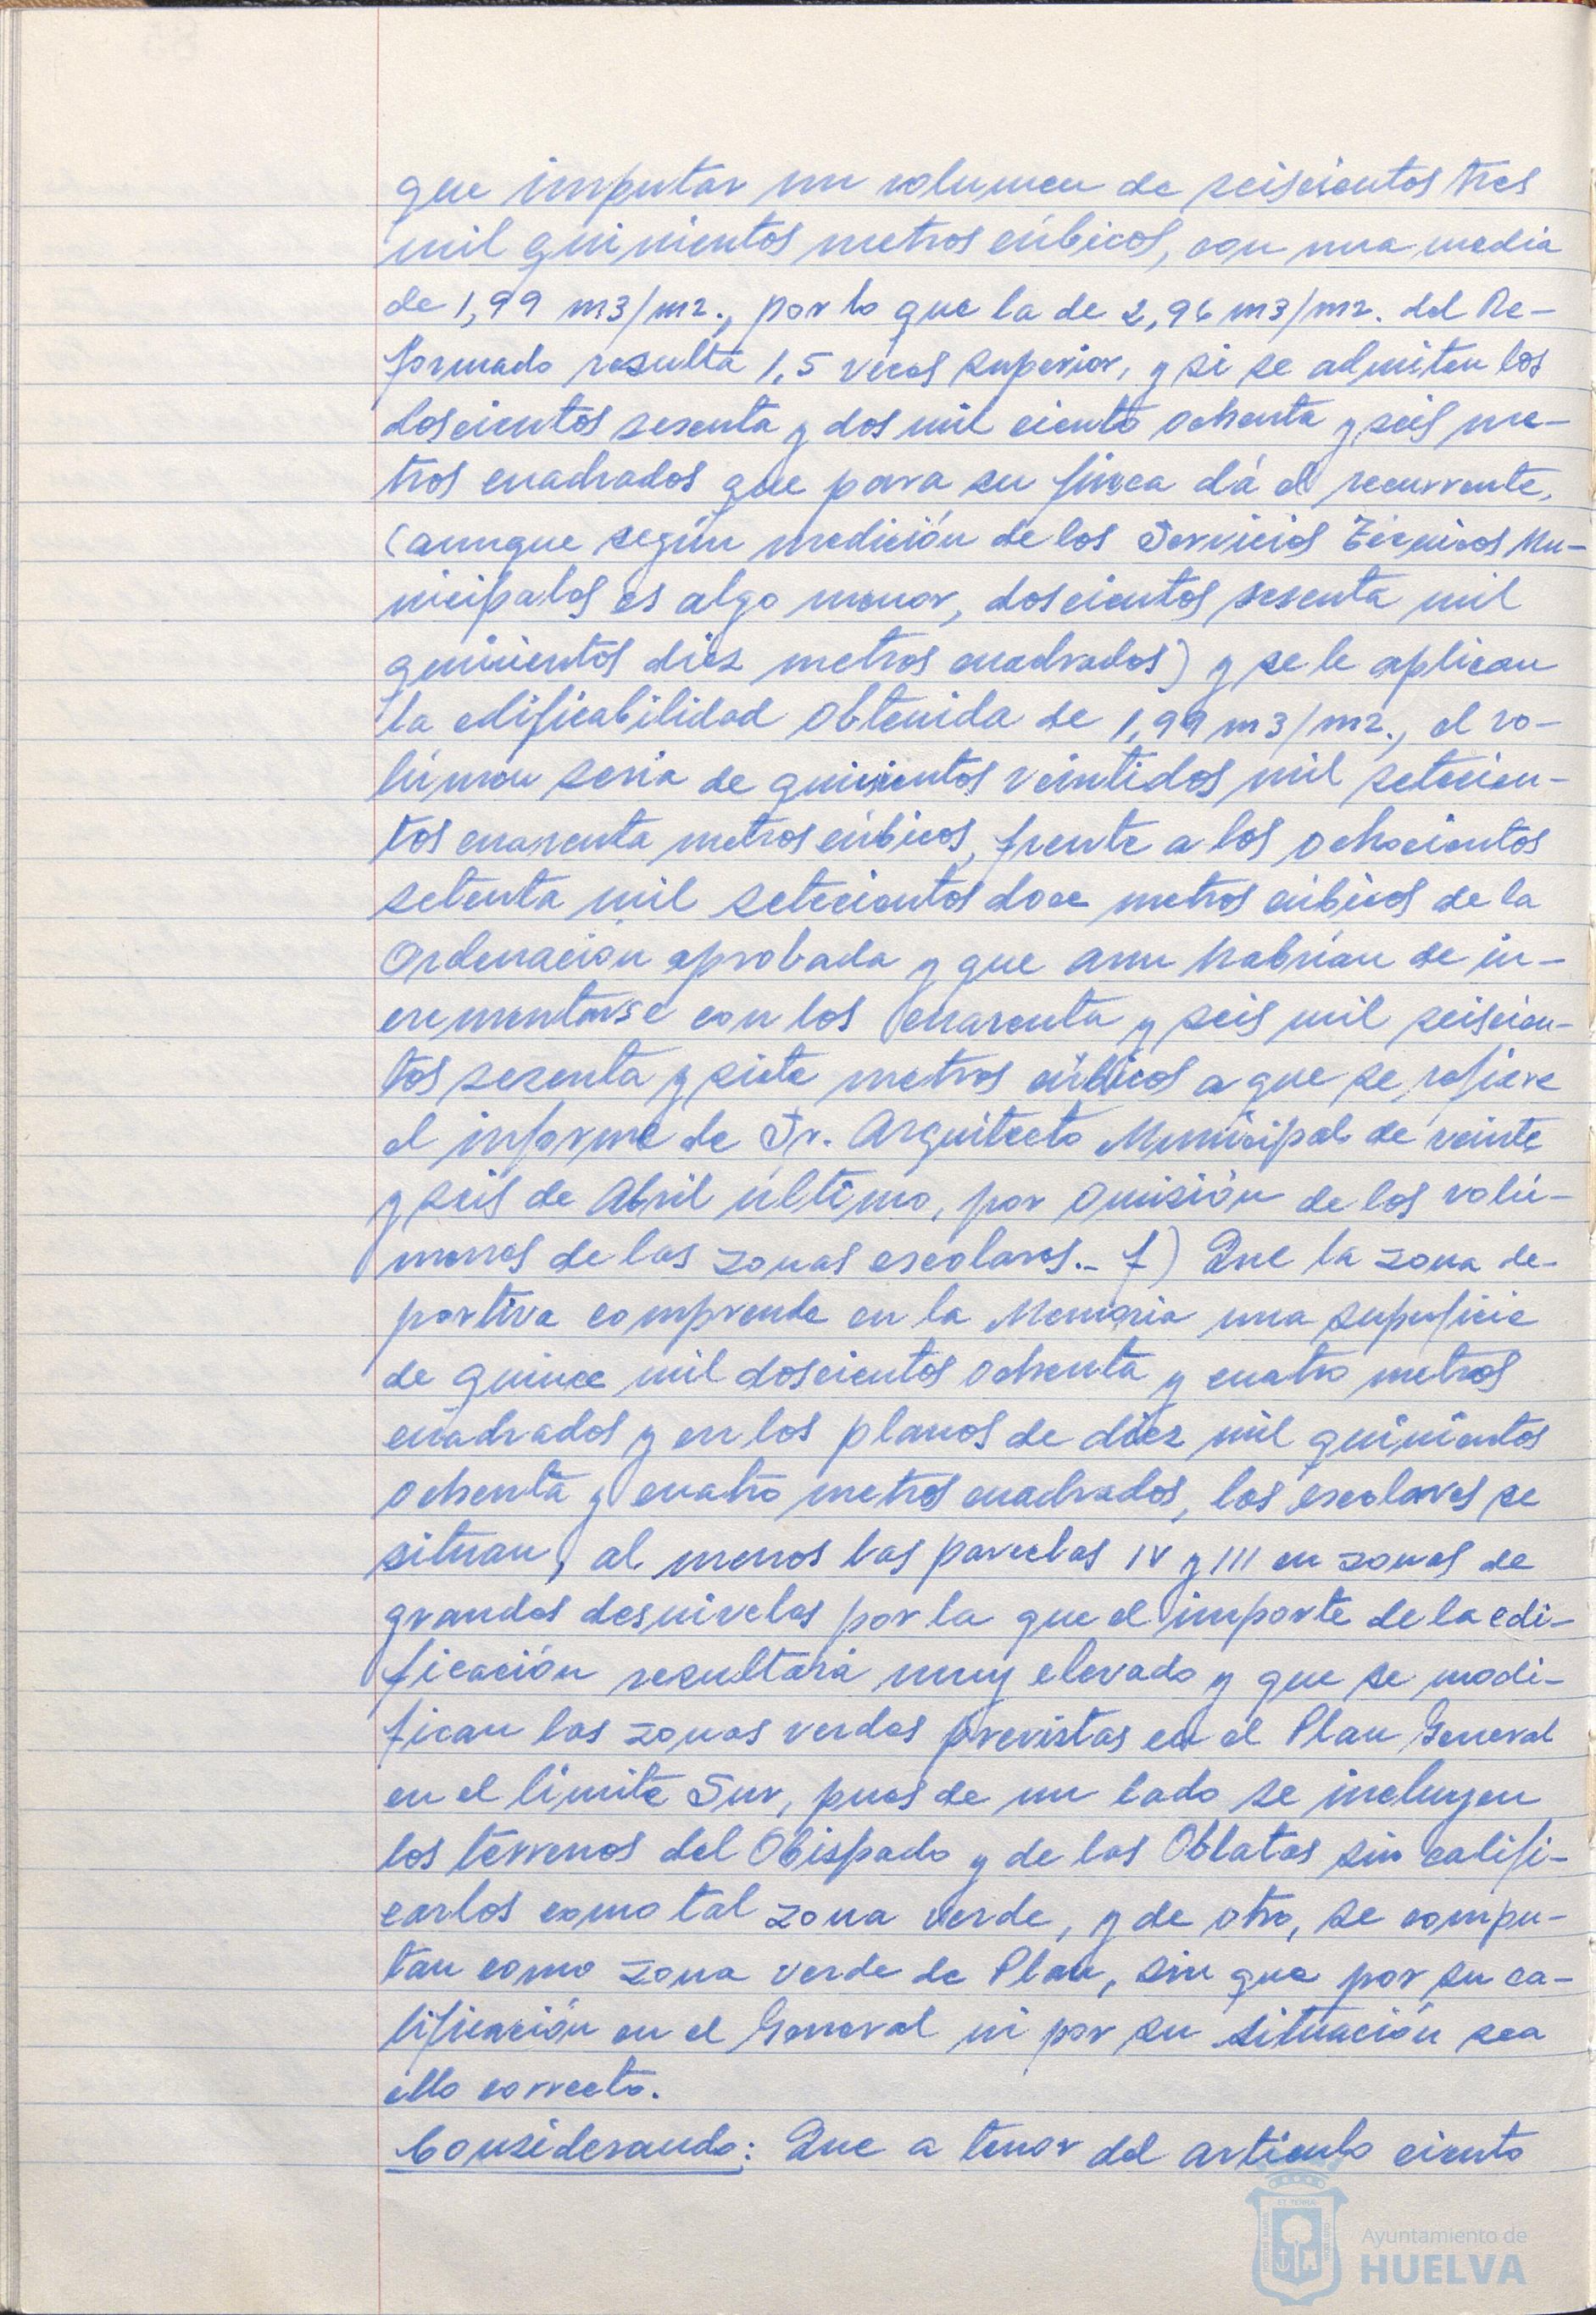 que imputar un volumen de seiscientos tres
mil quinientos metros cúbicos, con una media
de 1,99 m3/m2., por lo que la de 2,96 m3/m2. del Re-
formado resulta 1,5 veces superior, y si se admiten los
doscientos sesenta y dos mil ciento ochenta y seis me-
tros cuadrados que para su finca dá el recurrente,
(aunque según medición de los Servicios Técnicos Mu-
nicipales es algo menor, doscientos sesenta mil
quinientos diez metros cuadrados) y se le aplican
la edificabilidad obtenida de 1,99 m3/m2., el vo-
lúmen seria de quinientos veintidos mil setecien-
tos cuarenta metros cúbicos, frente a los ochocientos
setenta mil setecientos doce metros cúbicos de la
Ordenación aprobada y que aun habrían de in-
crementarse con los cuarenta y seis mil seiscien-
tos sesenta y siete metros cúbicos a que se refiere
el informe de Sr. Arquitecto Municipal de veinte
y seis de Abril último, por omisión de los volú-
menes de las zonas escolares.- f) Que la zona de-
portiva comprende en la Memoria una superficie
de quince mil doscientos ochenta y cuatro metros
cuadrados y en los planos de diez mil quinientos
ochenta y cuatro metros cuadrados, los escolares se
situan, al menos las parcelas IV y III en zonas de
grandes desniveles por la que el importe de la edi-
ficación resultará muy elevado y que se modi-
fican las zonas verdes previstas en el Plan General
en el limite Sur, pues de un lado se incluyen
los terrenos del Obispado y de las Oblatas sin califi-
carlos como tal zona verde, y de otro, se compu-
tan como zona verde de Plan, sin que por su ca-
lificación en el General ni por su situación sea
ello correcto.
Considerando: Que a tenor del artículo ciento
Ayuntamiento de
HUELVA